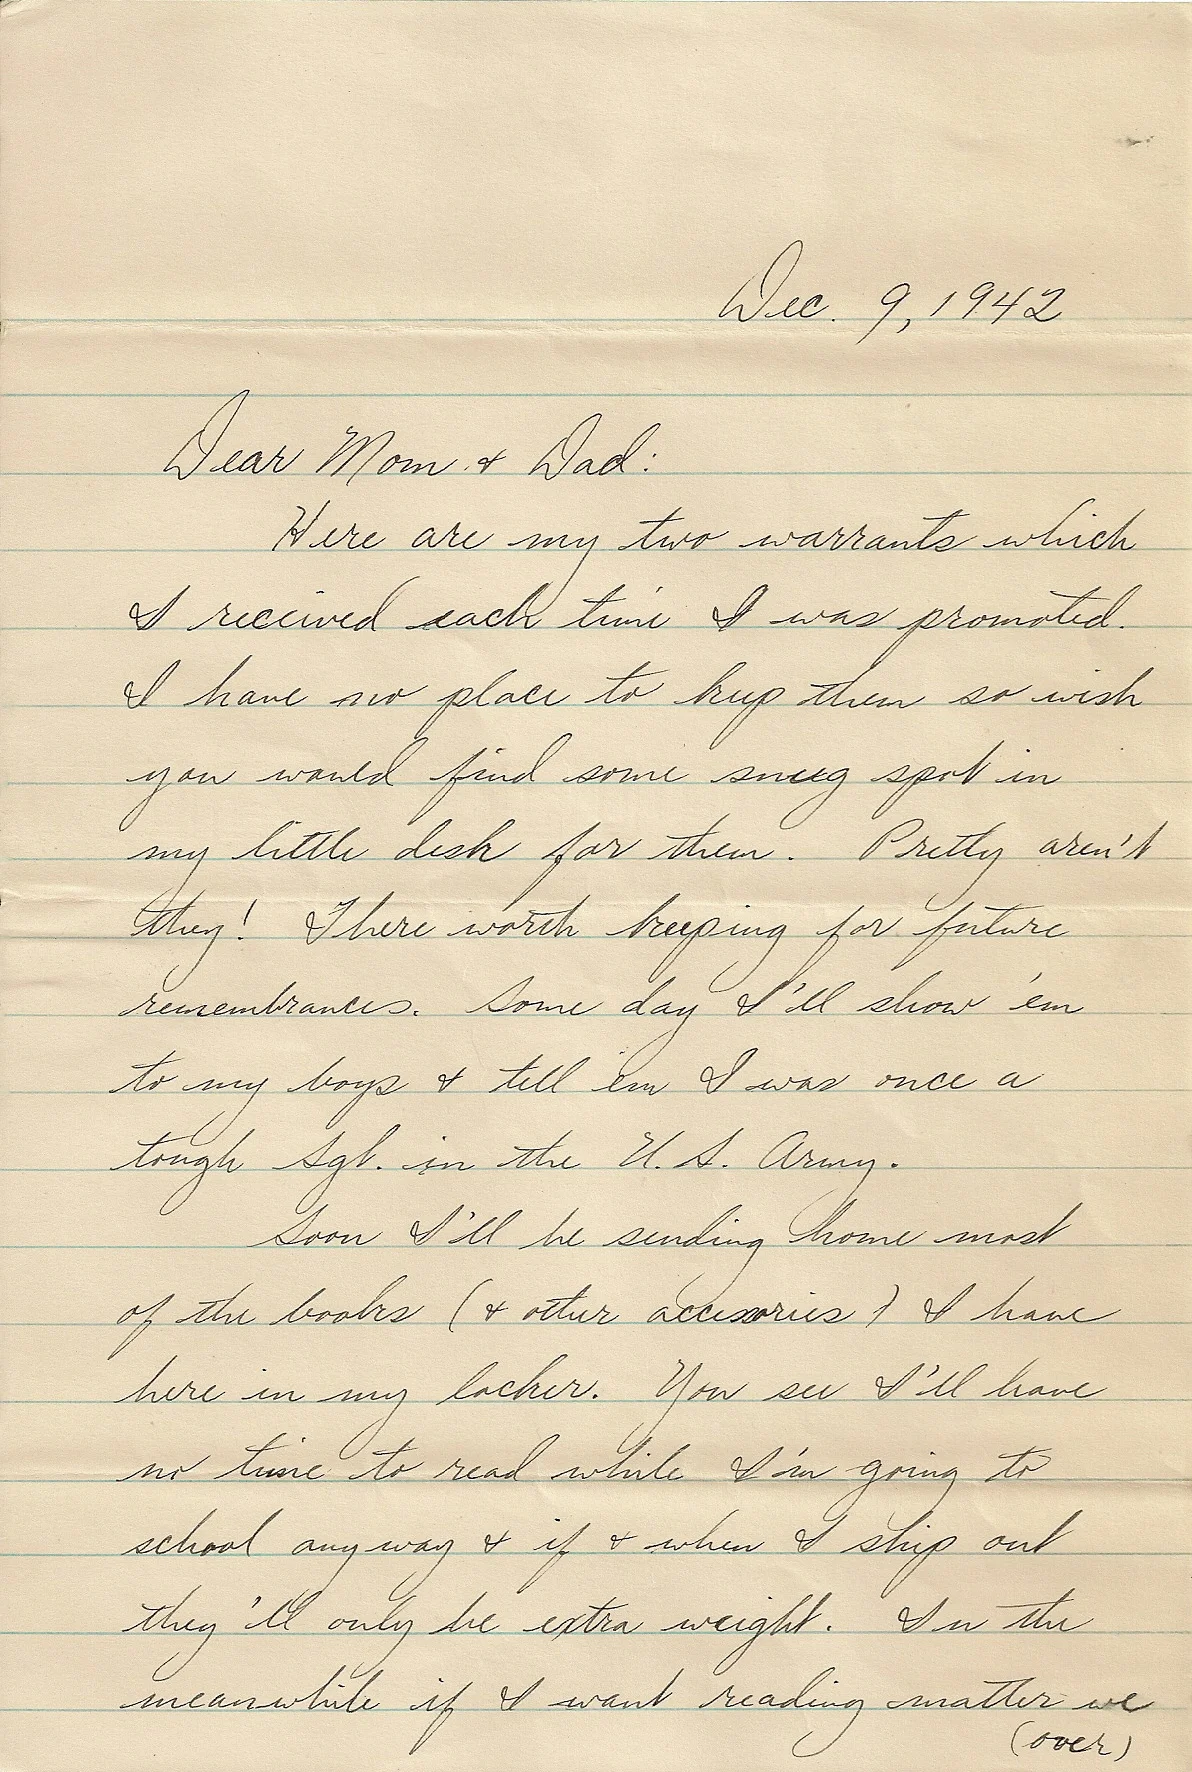 Dec. 9, 1942
Dear Mom & Dad:
Here are my two warrants which
I received each time I was promoted.
I have no place to keep them so wish
you would find some snug spot in
my little desk for them. Pretty aren't
they! There worth keeping for future
remembrances. Some day I'll show 'em
to my boys & tell 'em I was once a
tough Sgt. in the U. S. Army.
Soon I'll be sending home most
of the books (& other accessories) I have
here in my locker. You see I'll have
no time to read while I'm going to
school anyway & if & when I ship out
they'll only be extra weight. In the
meanwhile if I want reading matter we
(over)